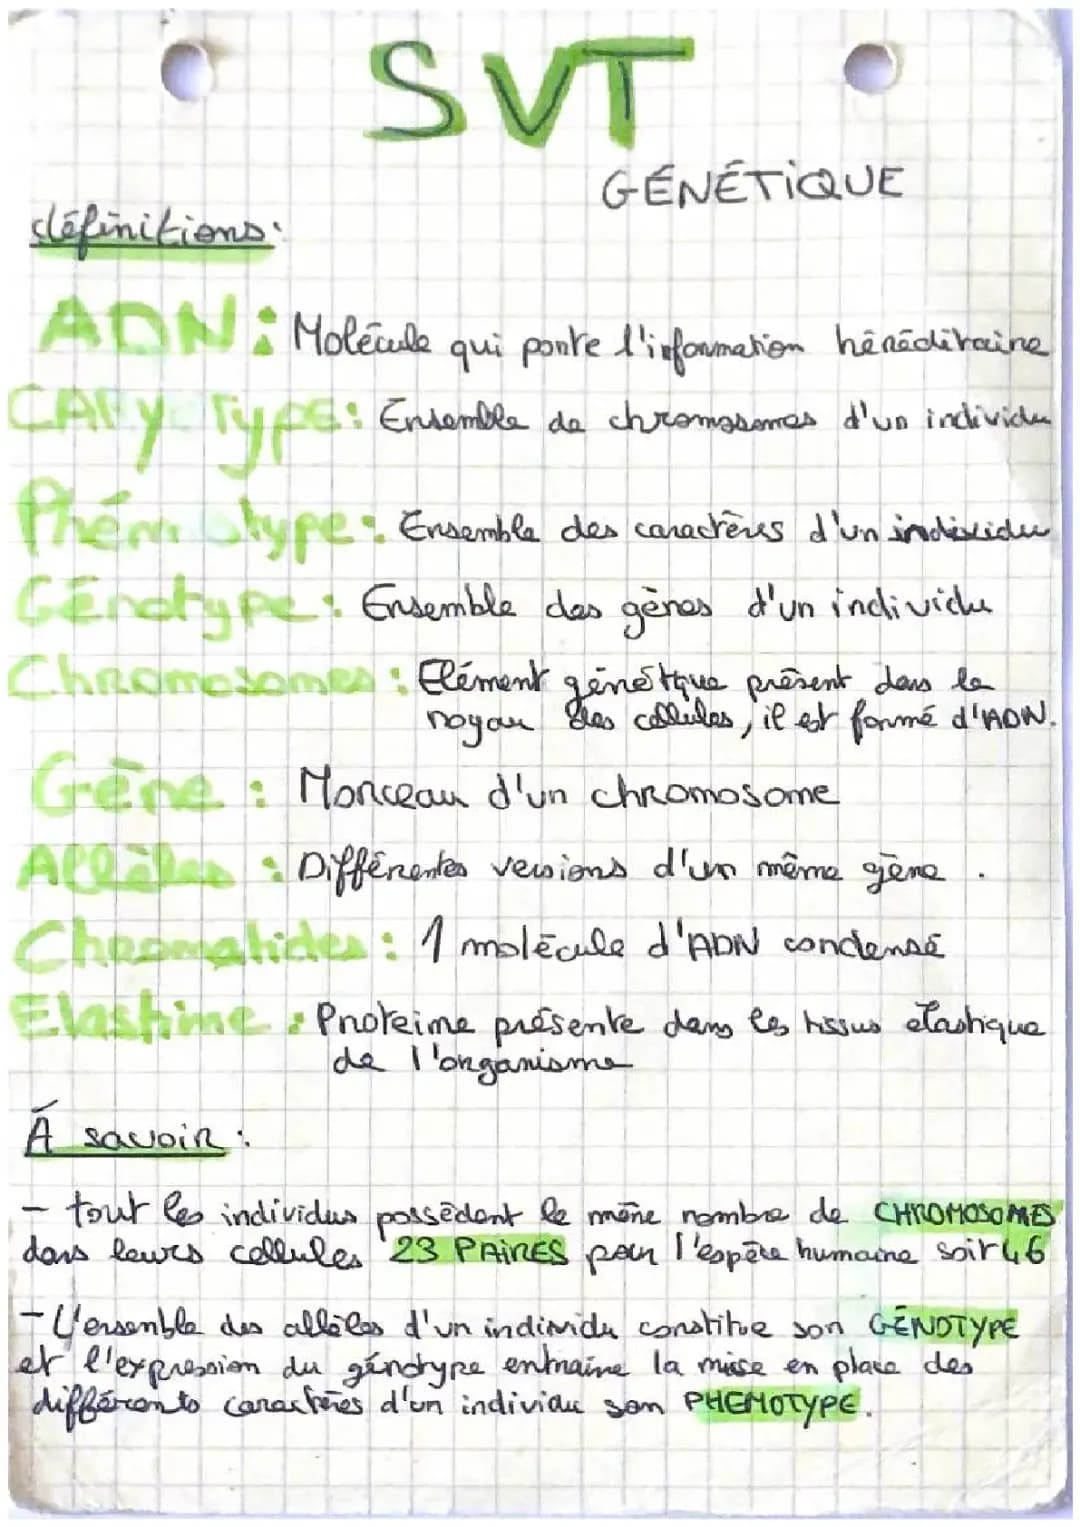 SVT
GÉNÉTIQUE
définitions:
ADN: Molécule qui porte l'information héréditaire
CARyoTypE: Ensemble de chromosomes d'un individu
Phénotype: Ensemble des caractères d'un individu
Génotype: Ensemble des gènes d'un individu
Chromosomes: Elément génétique présent dans le
noyau des cellules, il est formé d'ADN.
Gène: Morceau d'un chromosome
Allèles: Différentes versions d'un même gène.
Chromatides: 1 molécule d'ADN condensé
Elastine: Proteine présente dans les tissus élastique
de l'organisme
À savoir:
- tout les individus possèdent le même nombre de CHROMOSOMES
dans leurs cellules 23 PAIRES pour l'espèce humaine soit 46
- L'ensemble des allèles d'un individu constitue son GÉNOTYPE
et l'expression du génotype entraine la mise en place des
différents caractères d'un individu son PHENOTYPE.